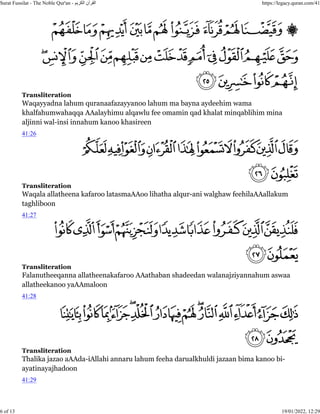 Surat Fussilat - The Noble Qur'an - القرآن الكريم
https://legacy.quran.com/41
۞ وَقَيَّضْنَا لَهُمْ قُرَنَآءَ فَزَيَّنُوا۟ لَهُم مَّا بَيْنَ أَيْدِيهِمْ وَمَا خَلْفَهُمْ
وَحَقَّ عَلَيْهِمُ ٱلْقَوْلُ فِىٓ أُمَمٍ قَدْ خَلَتْ مِن قَبْلِهِم مِّنَ ٱلْجِنِّ وَٱلْإِنسِ ۖ
إِنَّهُمْ كَانُوا۟ خَٰسِرِينَ ٢٥
Transliteration
Waqayyadna lahum quranaafazayyanoo lahum ma bayna aydeehim wama
khalfahumwahaqqa AAalayhimu alqawlu fee omamin qad khalat minqablihim mina
aljinni wal-insi innahum kanoo khasireen
41:26
وَقَالَ ٱلَّذِينَ كَفَرُوا۟ لَا تَسْمَعُوا۟ لِهَٰذَا ٱلْقُرْءَانِ وَٱلْغَوْا۟ فِيهِ لَعَلَّكُمْ
تَغْلِبُونَ ٢٦
Transliteration
Waqala allatheena kafaroo latasmaAAoo lihatha alqur-ani walghaw feehilaAAallakum
taghliboon
41:27
فَلَنُذِيقَنَّ ٱلَّذِينَ كَفَرُوا۟ عَذَابًا شَدِيدًا وَلَنَجْزِيَنَّهُمْ أَسْوَأَ ٱلَّذِى كَانُوا۟
يَعْمَلُونَ ٢٧
Transliteration
Falanutheeqanna allatheenakafaroo AAathaban shadeedan walanajziyannahum aswaa
allatheekanoo yaAAmaloon
41:28
ذَٰلِكَ جَزَآءُ أَعْدَآءِ ٱللَّهِ ٱلنَّارُ ۖ لَهُمْ فِيهَا دَارُ ٱلْخُلْدِ ۖ جَزَآءًۢ بِمَا كَانُوا۟ بِـَٔايَٰتِنَا
يَجْحَدُونَ ٢٨
Transliteration
Thalika jazao aAAda-iAllahi annaru lahum feeha darualkhuldi jazaan bima kanoo bi-
ayatinayajhadoon
41:29
6 of 13
19/01/2022, 12:29